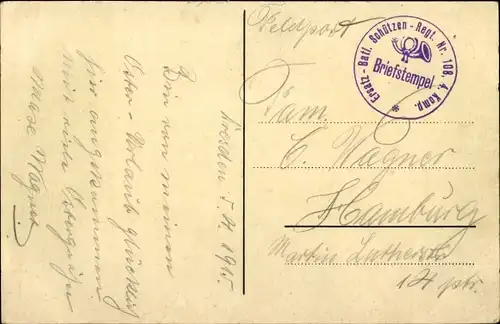 Feldpost
Ersatz-Batl. Schützen-Regt. Nr. 108. 4. Komp.
Briefstempel
Fam.
C. Wagner
Hamburg
Martin Lutherstr
14 ptr.
Dresden 5.4.1915.
Bin von meinem
Oster-Urlaub glücklich
hier angekommen.
Mit vielen
Maxe Wagner